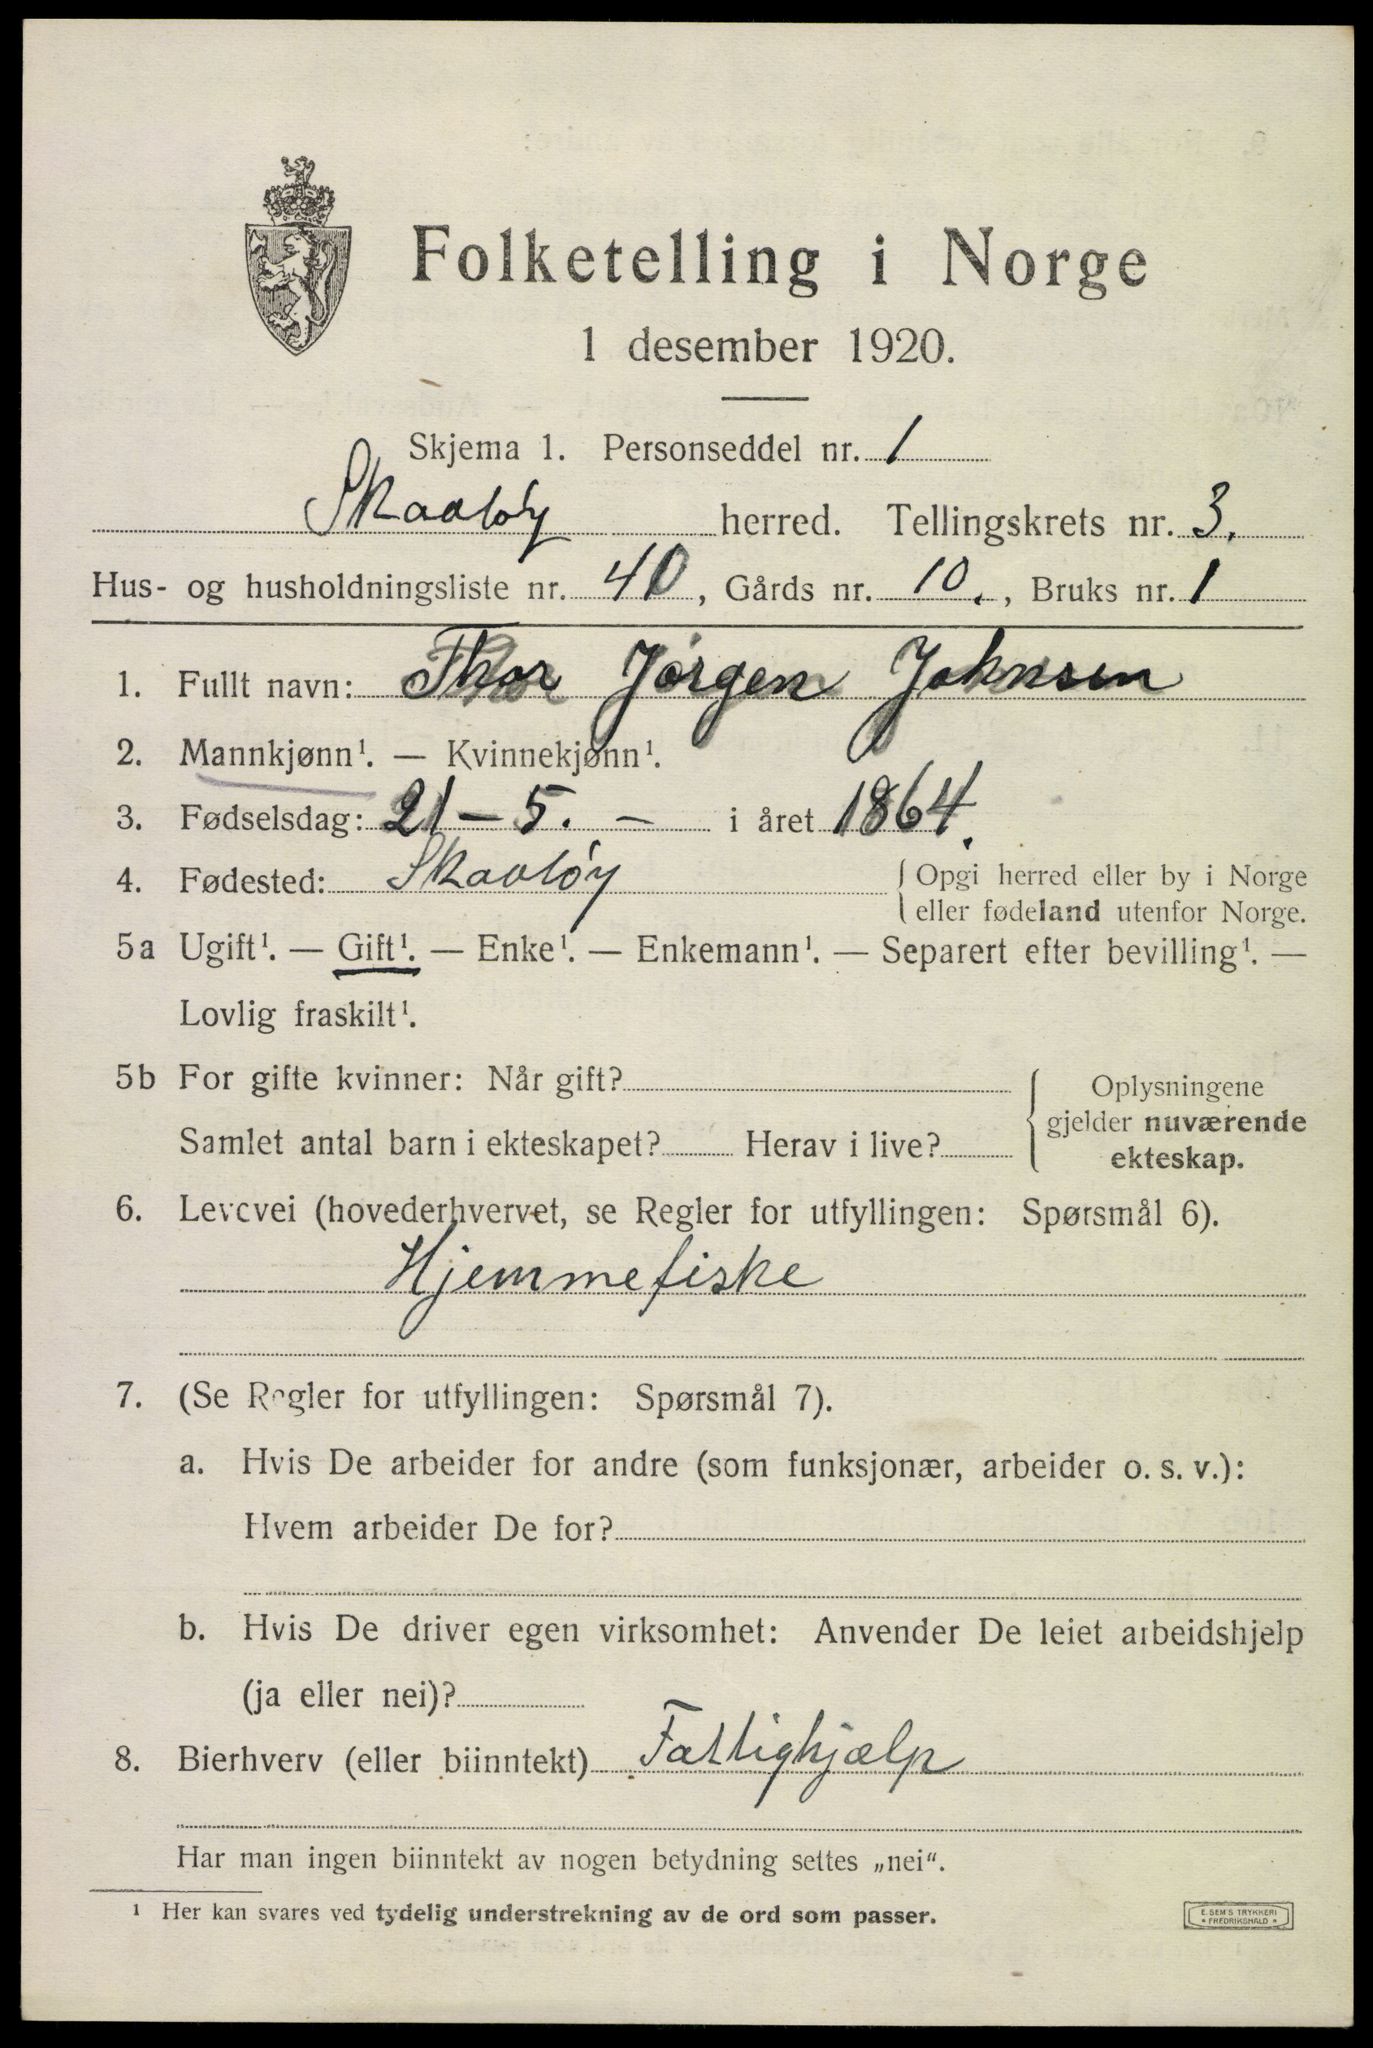 Folketelling i Norge
1 desember 1920.
Skjema 1. Personseddel nr. 1
Skaatöy herred. Tellingskrets nr. 3.
Hus- og husholdningsliste nr. 40, Gårds nr. 10., Bruks nr. 1
1. Fullt navn: Thor Jørgen Johnsen
2. Mannkjønn¹. — Kvinnekjønn¹.
3. Fødselsdag: 21 - 5. - i året 1864.
4. Fødested: Skaatöy { Opgi herred eller by i Norge
eller fødeland utenfor Norge.
5a Ugift¹. — Gift¹. — Enke¹. — Enkemann¹. — Separert efter bevilling¹. —
Lovlig fraskilt¹.
5b For gifte kvinner: Når gift?
Samlet antal barn i ekteskapet? Herav i live?
{ Oplysningene
gjelder nuværende
ekteskap.
6. Levevei (hovederhvervet, se Regler for utfyllingen: Spørsmål 6).
Hjemmefiske
7. (Se Regler for utfyllingen: Spørsmål 7).
a. Hvis De arbeider for andre (som funksjonær, arbeider o. s. v.):
Hvem arbeider De for?
b. Hvis De driver egen virksomhet: Anvender De leiet arbeidshjelp
(ja eller nei)?
8. Bierhverv (eller biinntekt) Fattighjælp
Har man ingen biinntekt av nogen betydning settes „nei".
¹ Her kan svares ved tydelig understrekning av de ord som passer.
E. SEM'S TRYKKERI
* FREDRIKSHALD *